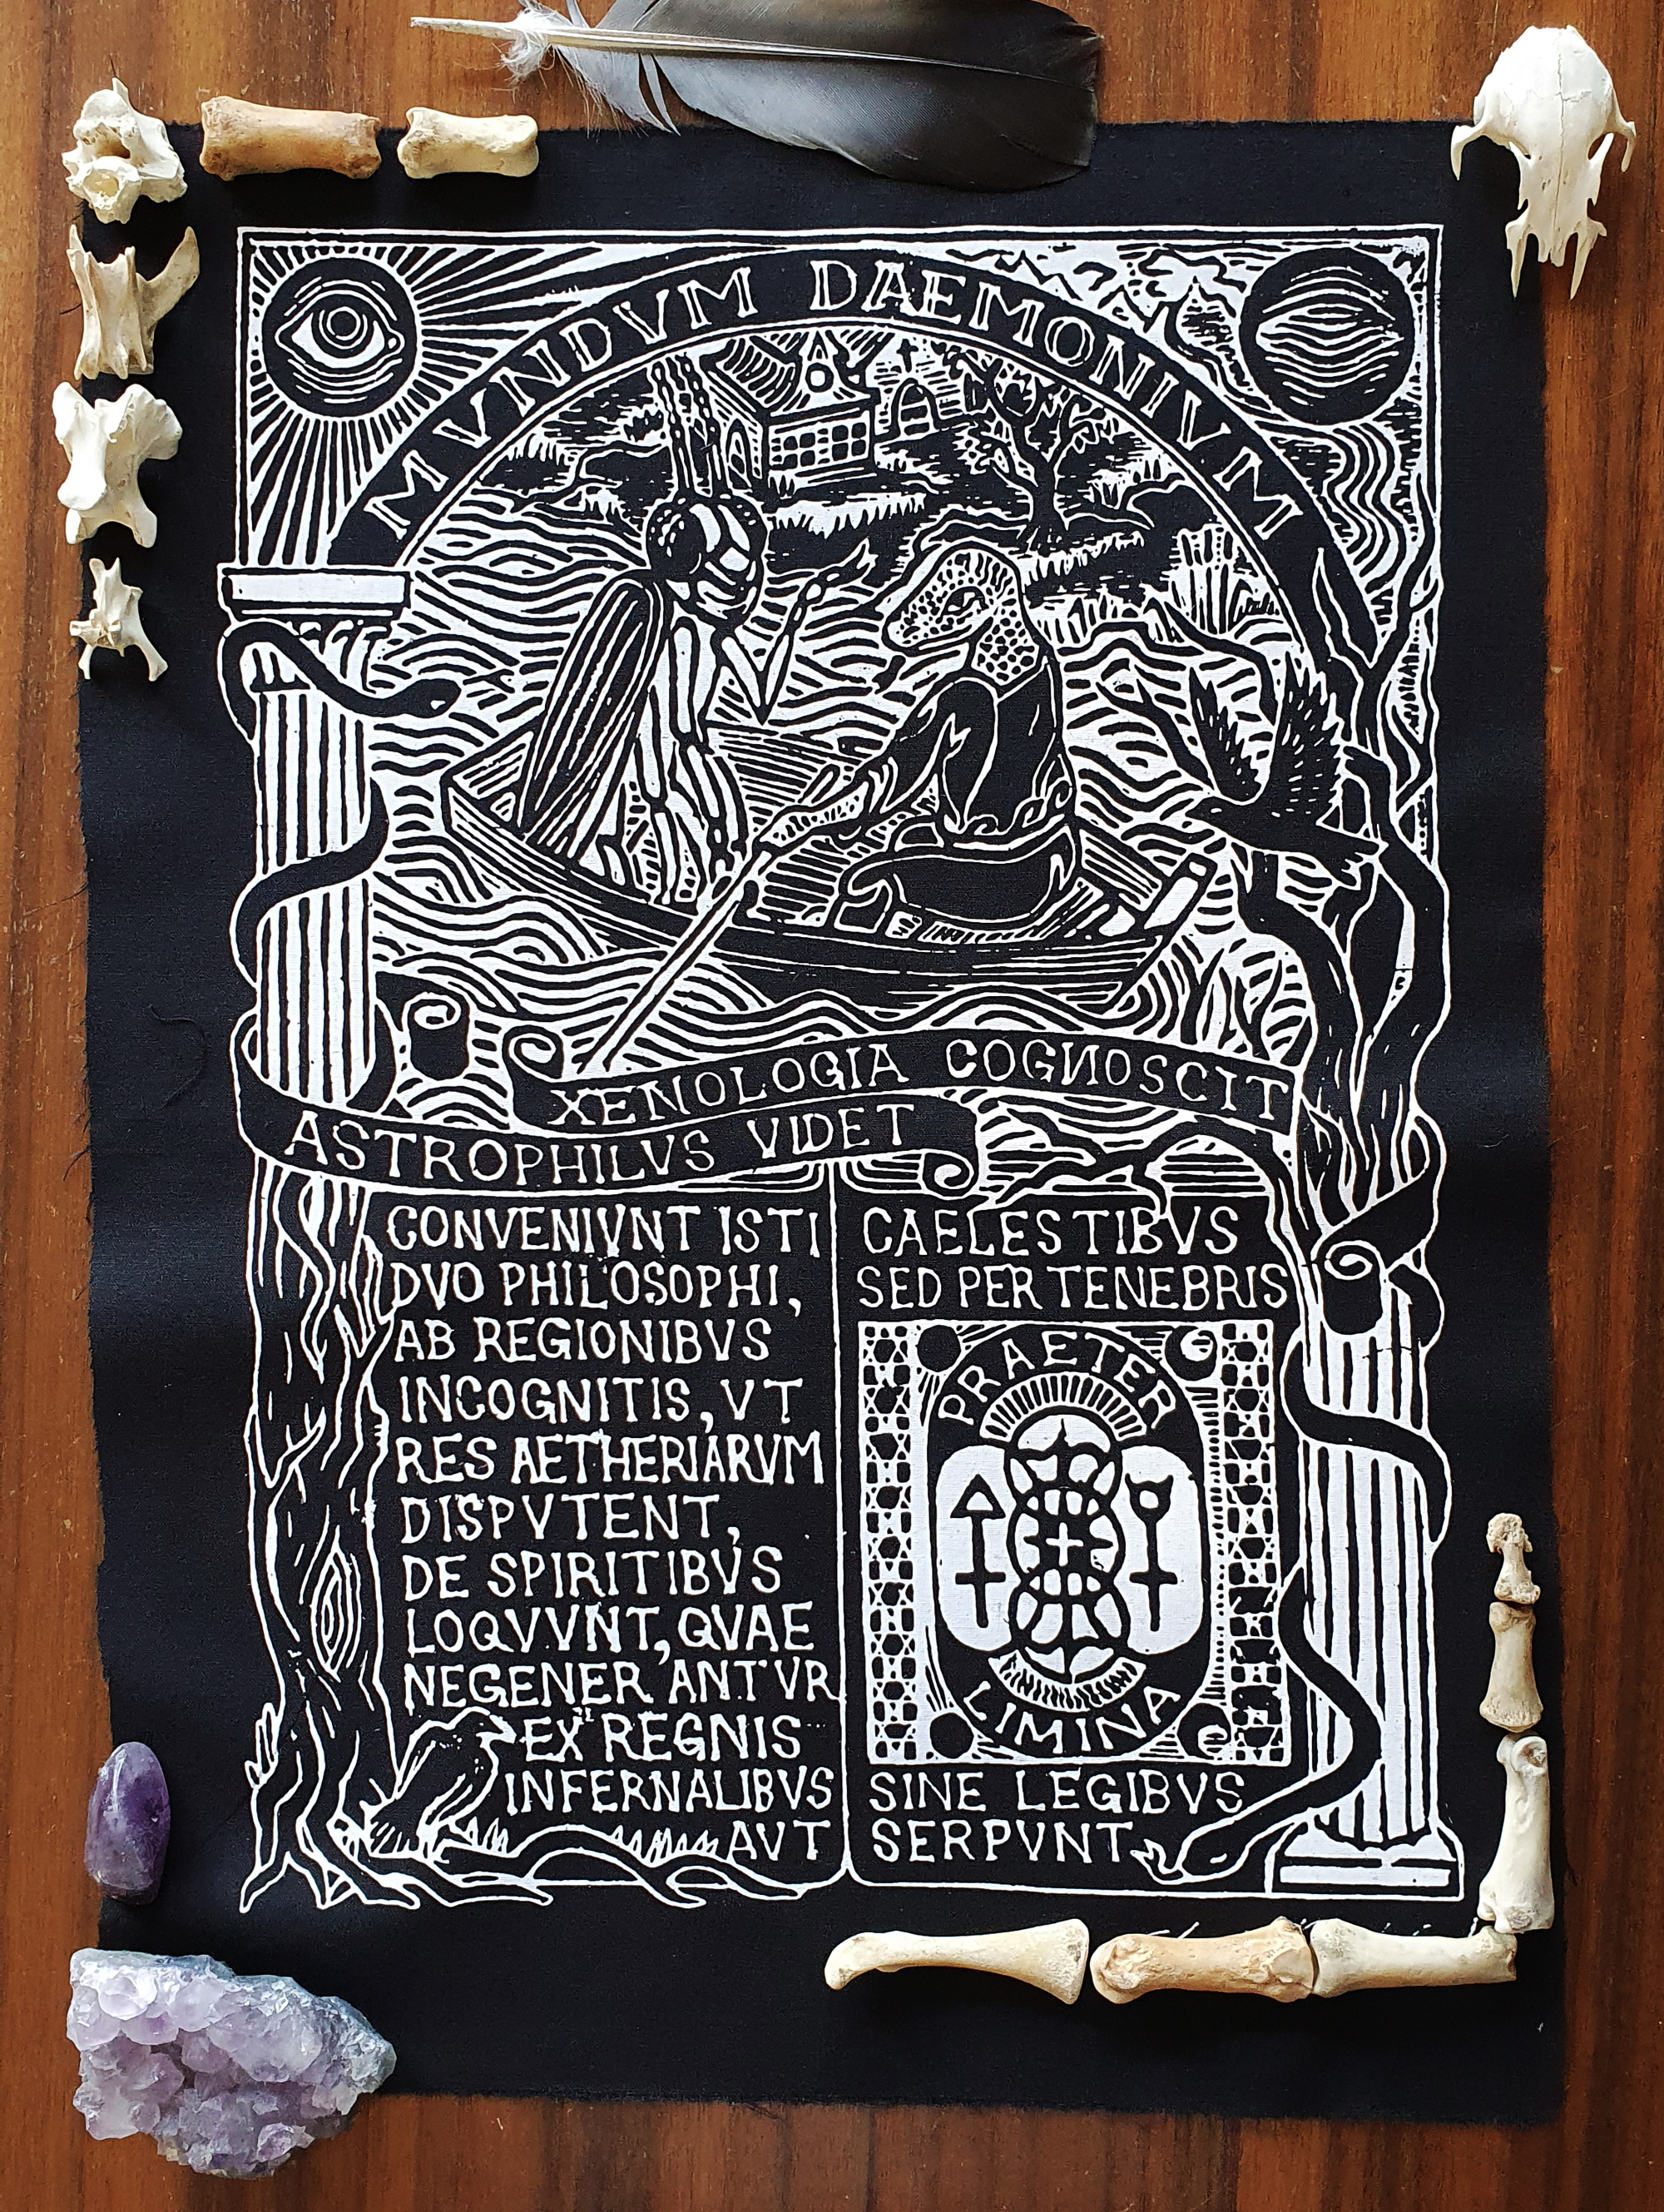 MVNDVM DAEMONIVM
XENOLOGIA COGNOSCIT
ASTROPHILVS VIDET
CONVENIVNT ISTI
DVO PHILOSOPHI,
AB REGIONIBVS
INCOGNITIS, VT
RES AETHERIARVM
DISPVTENT,
DE SPIRITIBVS
LOQVVNT, QVAE
NEGENERANTVR
EX REGNIS
INFERNALIBVS
AVT
CAELESTIBVS
SED PER TENEBRIS
PRAETER
LIMINA
SINE LEGIBVS
SERPVNT